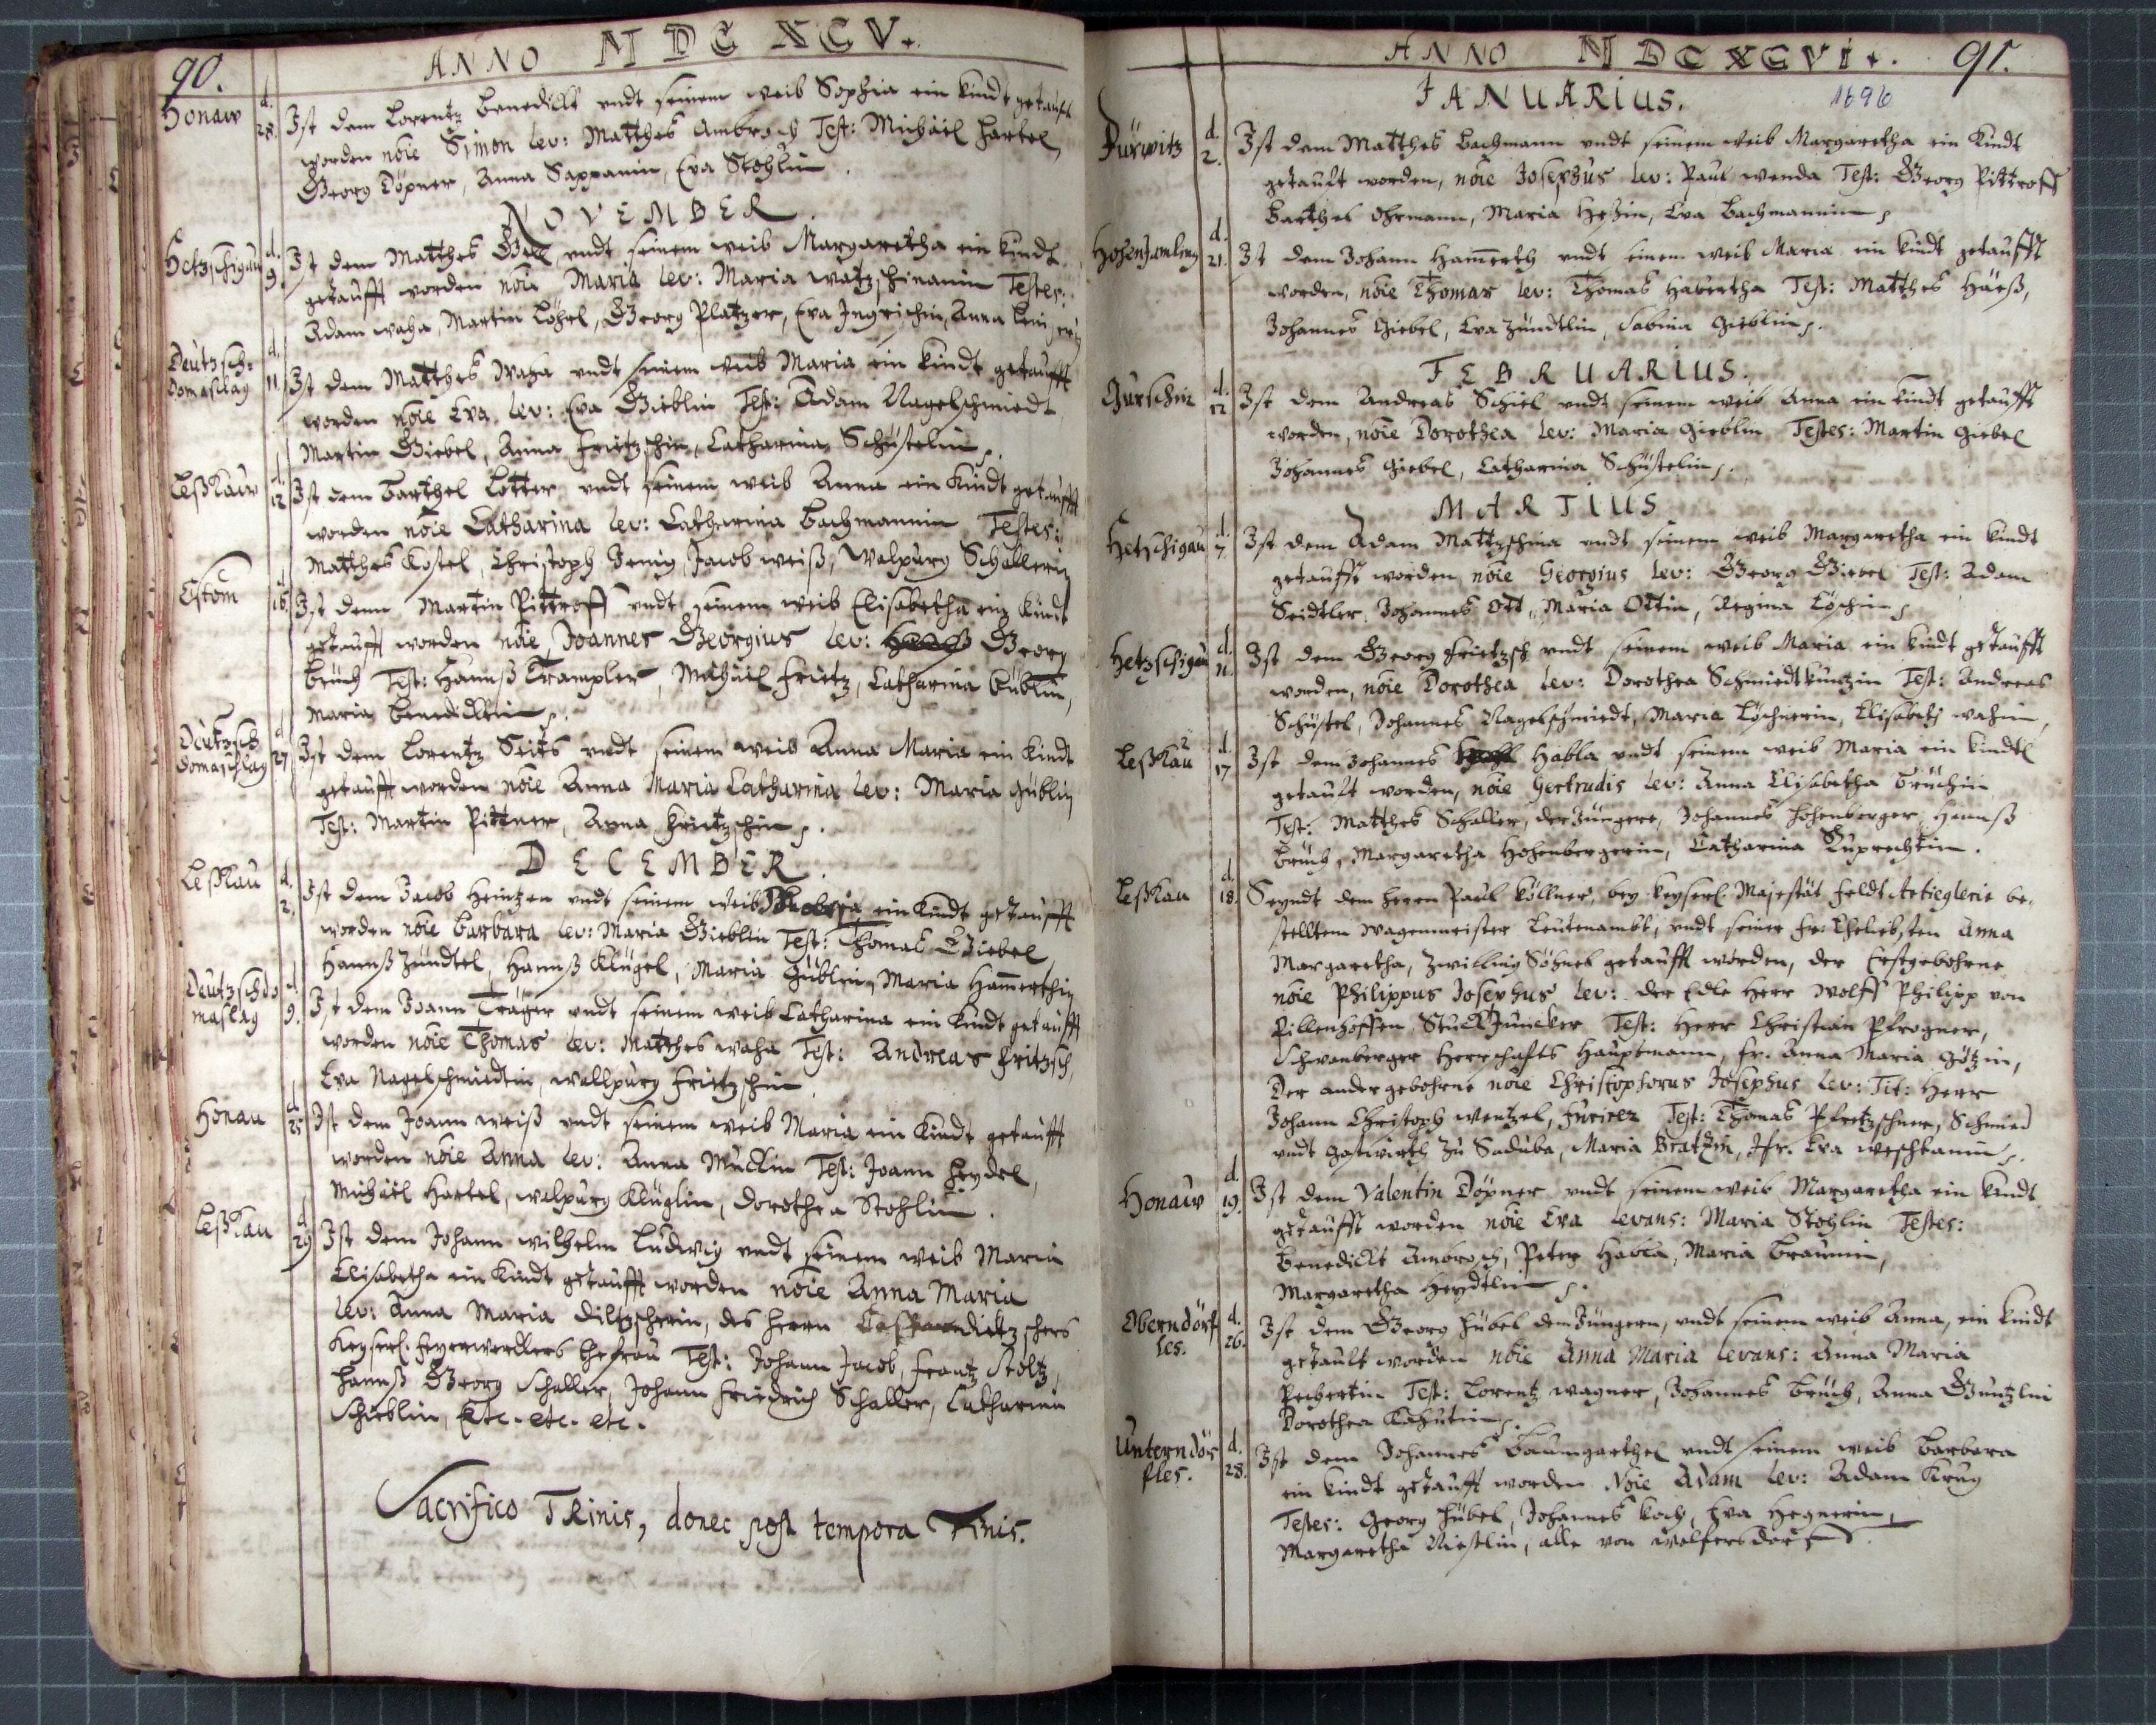 90.
ANNO MDCXCV.
Honaw d. 28. Ist dem Lorentz Benedickt vndt seinem weib Sophia ein kindt getaufft
worden noie Simon lev: Matthes Ambrosch Test: Michäel Hartel,
Georg Döpner, Anna Sappanin, Eva Stöhlin.
NOVEMBER.
Hetzschigau d. 9. Ist dem Matthes vndt seinem weib Margaretha ein kindt
getaufft worden noie Maria lev: Maria watzschinanin Testes:
Adam waha, Martin Löhrl, Georg Platzer, Eva Ingrischin, Anna
Deutzsch: Domaschlag d. 11. Ist dem Matthes Waha vndt seinem weib Maria ein kindt getaufft
worden noie Eva. lev: Eva Gieblin Test: Adam Nagelschmiedt
Martin Giebel, Anna Frietzschin, Catharina Schüstelin.
Leßkaw d. 12 Ist dem Barthel Lotter vndt seinem weib Anna ein Kindt getaufft
worden noie Catharina lev: Catharina Bachmannin Testes:
Matthes Kostel, Christoph Jenig, Jacob weiß, Walpurg Schallerin
Tstom d. 16. Ist dem Martin Pittroff vndt seinem weib Elisabetha ein Kindt
getaufft worden noie Joannes Georgius lev: Georg
Brüch Test: Hannß Trampler, Michäel Frietz, Catharina Küblin,
Maria Benedicktin.
Deutzsch Domaschlag d. 27 Ist dem Lorentz Seits vndt seinem weib Anna Maria ein Kindt
getaufft worden noie Anna Maria Catharina lev: Maria Güblin
Test: Martin Pittner, Anna Frietzschin.
DECEMBER.
Leßkau d. 2. Ist dem Jacob Heintzen vndt seinem weib ein Kindt getaufft
worden noie Barbara lev: Maria Gieblin Test: Thomas Giebel,
Hannß Zündtel, Hannß Klügel, Maria Güblin, Maria Hamerthin
Deutzschdo maslag d. 9. Ist dem Joann Träger vndt seinem weib Catharina ein Kindt getaufft
worden noie Thomas lev: Matthes waha Test: Andreas Fritzsch,
Eva Nagelschmiedtin, wallpurg Frietzschin
Honau d. 25 Ist dem Joann weiß vndt seinem weib Maria ein Kindt getaufft
worden noie Anna lev: Anna Mücklin Test: Joann Heydel,
Michäel Hartel, walpurg Klüglin, Dorothea Stöhlin.
Leßkau d. 29 Ist dem Johann wilhelm Ludwig vndt seinem weib Maria
Elisabetha ein Kindt getaufft worden noie Anna Maria
lev: Anna Maria Diltzscherin, des Herrn
Keyserl: Feyerwerckers Ehefrau Test: Johann Jacob, Frantz Stoltz,
Hannß Georg Schaller, Johann Friedrich Schaller, Catharina
Schieblin, Etc. etc. etc.
Sacrifico TRinis, donec post tempora Finis.
ANNO MDCXCVI. 91.
JANUARIUS. 1696
Dürwitz d. 2. Ist dem Matthes Bachmann vndt seinem weib Margaretha ein Kindt
getaufft worden, noie Josephus lev: Paul wenda Test: Georg Pittroff
Barthes Ohrmann, Maria Heßin, Eva Bachmannin.
Hohenjamling d. 21. Ist dem Johann Hamerth vndt seinem weib Maria ein kindt getaufft
worden, noie Thomas lev: Thomas Habertha Test: Matthes Häeß,
Johannes Giebel, Eva Zündtlin, Sabina Gieblin.
FEBRUARIUS.
Gurschin d. 12 Ist dem Andreas Schiel vndt seinem weib Anna ein kindt getaufft
worden, noie Dorothea lev: Maria Gieblin Testes: Martin Giebel
Johannes Giebel, Catharina Schüstelin.
MARTIUS
Hetschigau d. 7. Ist dem Adam Mattzschina vndt seinem weib Margaretha ein kindt
getaufft worden, noie Georgius lev: Georg Giebel Test: Adam
Seidtler, Johannes Ott, Maria Ottin, Regina Löschin.
Hetzschigau d. 11. Ist dem Georg Frietzsch vndt seinem weib Maria ein kindt getaufft
worden, noie Dorothea lev: Dorothea Schmiedtkuntzin Test: Andreas
Schüstel, Johannes Nagelschmiedt, Maria Löchnerin, Elisabeth wahin,
Leßkau d. 17 Ist dem Johannes Habla vndt seinem weib Maria ein kindtl
getaufft worden, noie Gertrudis lev: Anna Elisabetha Brüchin
Test: Matthes Schaller, der Jüngere, Johannes Hohenberger, Hannß
Brüch, Margaretha Hohenbergerin, Catharina Ruprechtin.
Leßkau d. 18. Seyndt dem Herrn Paul Köllner, bey Keyserl: Majestät Feldt Artieglerie be-
stelltem Wagenmeister Leutenambt, vndt seiner Fr: Eheliebsten Anna
Margaretha, Zwilling Söhnes getaufft worden, der Erstgebohrne
noie Philippus Josephus lev: der Edle Herr Wolff Philipp von
Pillenhoffen Stuck Juncker Test: Herr Christian Pfrogner,
Schwanberger Herrschafts Hauptmann, Fr. Anna Maria Götzin,
Der ander gebohrne noie Christophorus Josephus lev: Tit: Herr
Johann Christoph Wentzel, Furirer Test: Thomas Pfretzschner, Schmied
vndt Gastwirth zu Saduba, Maria Bratzin, Jfr. Eva Weschkanin.
Honaw d. 19. Ist dem Valentin Döpner vndt seinem weib Margaretha ein Kindt
getaufft worden noie Eva levans: Maria Stöhlin Testes:
Benedickt Ambrosch, Peter Habla, Maria Braunin,
Margaretha Heydtlin.
Oberndörf les. d. 26. Ist dem Georg Hübel dem Jüngern, vndt seinem weib Anna, ein kindt
getaufft worden noie Anna Maria levans: Anna Maria
Peibertin Test: Lorentz wagner, Johannes Brüch, Anna Güntzlin
Dorothea Kahutin.
Unterndör fles. d. 28. Ist dem Johannes Baumgarthel vndt seinem weib Barbara
ein kindt getaufft worden Noie Adam lev: Adam Krug
Testes: Georg Hübel, Johannes Koch, Eva Hegnerin,
Margaretha Nießlin, alle von Wolfersdorf.